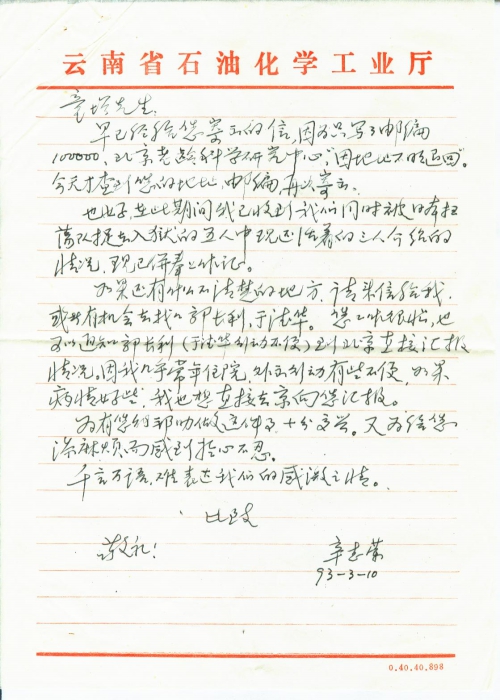 云南省石油化学工业厅
童增先生:
早已经给您寄出的信,因为只写了邮编
100000,北京老龄科学研究中心,"因地址不明退回"。
今天才查到您的地址,邮编,再次寄去。
也好,在此期间我已收到我们同时被日本扫
荡队捉去入狱的五人中现还活着的三人介绍的
情况,现已併寄上作证。
如果还有什么不清楚的地方,请来信给我,
或者有机会去找郭长利,于清华。您工作很忙,也
可以通知郭长利(于清华行动不便)到北京直接汇报
情况。因我几乎常年住院,外出行动有些不便,如果
病情好些,我也想直接去京向您汇报。
为有您们帮助做这件事,十分高兴。又为给您
添麻烦而感到担心不忍。
千言万语,难表达我们的感激之情。
此致
敬礼!
辛志荣
93-3-10
0.40.40.898